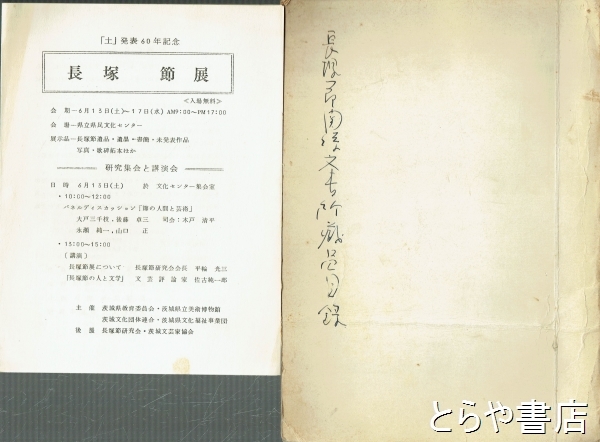 「土」発表60年記念
長塚 節展
<入場無料>
会 期－6月13日(土)～17日(水) AM9:00～PM17:00
会 場－県立県民文化センター
展示品－長塚節遺品・遺墨・書簡・未発表作品
写真・歌碑拓本ほか
研究集会と講演会
日 時 6月13日(土) 於 文化センター集会室
・10:00～12:00
パネルディスカッション「節の人間と芸術」
大戸三千枝、後藤 章三 司会:木戸 清平
永瀬 純一、山口 正
・13:00～15:00
(講演)
長塚節展について 長塚節研究会会長 平輪 光三
「長塚節の人と文学」 文芸評論家 佐古純一郎
主 催 茨城県教育委員会・茨城県立美術博物館
茨城文化団体連合・茨城県文化福祉事業団
後 援 長塚節研究会・茨城文芸家協会
長塚節関係文書所蔵品目録
とらや書店